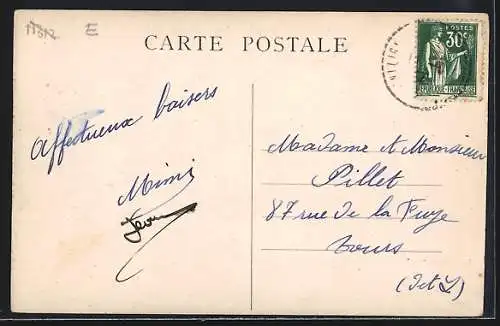 E
CARTE POSTALE
POSTES
30c
REPUBLIQUE FRANÇAISE
Affectueux baisers
Mimi
Madame et Monsieur
Pillet
87 rue de la Fuye
Tours
(I et L)